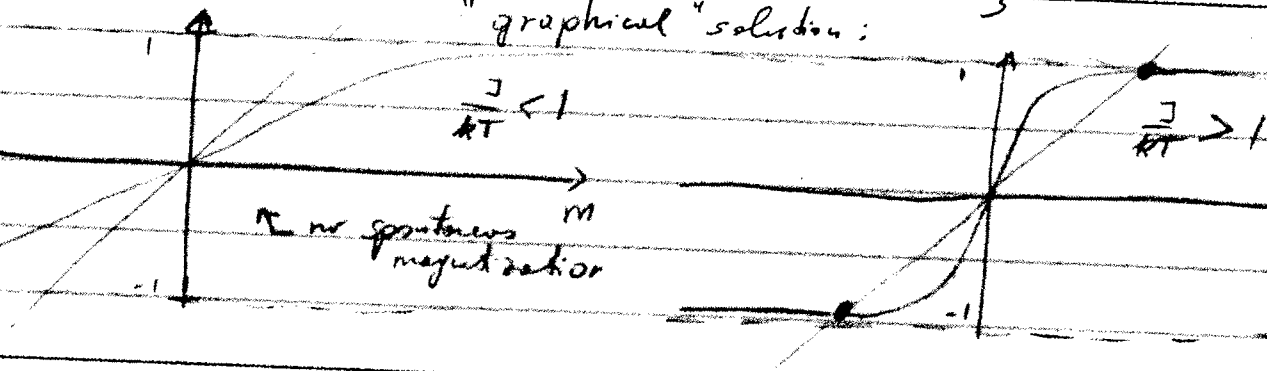 "graphical" solution:
1
J/kT < 1
m
↖ no spontaneous
magnetization
-1
1
J/kT > 1
-1